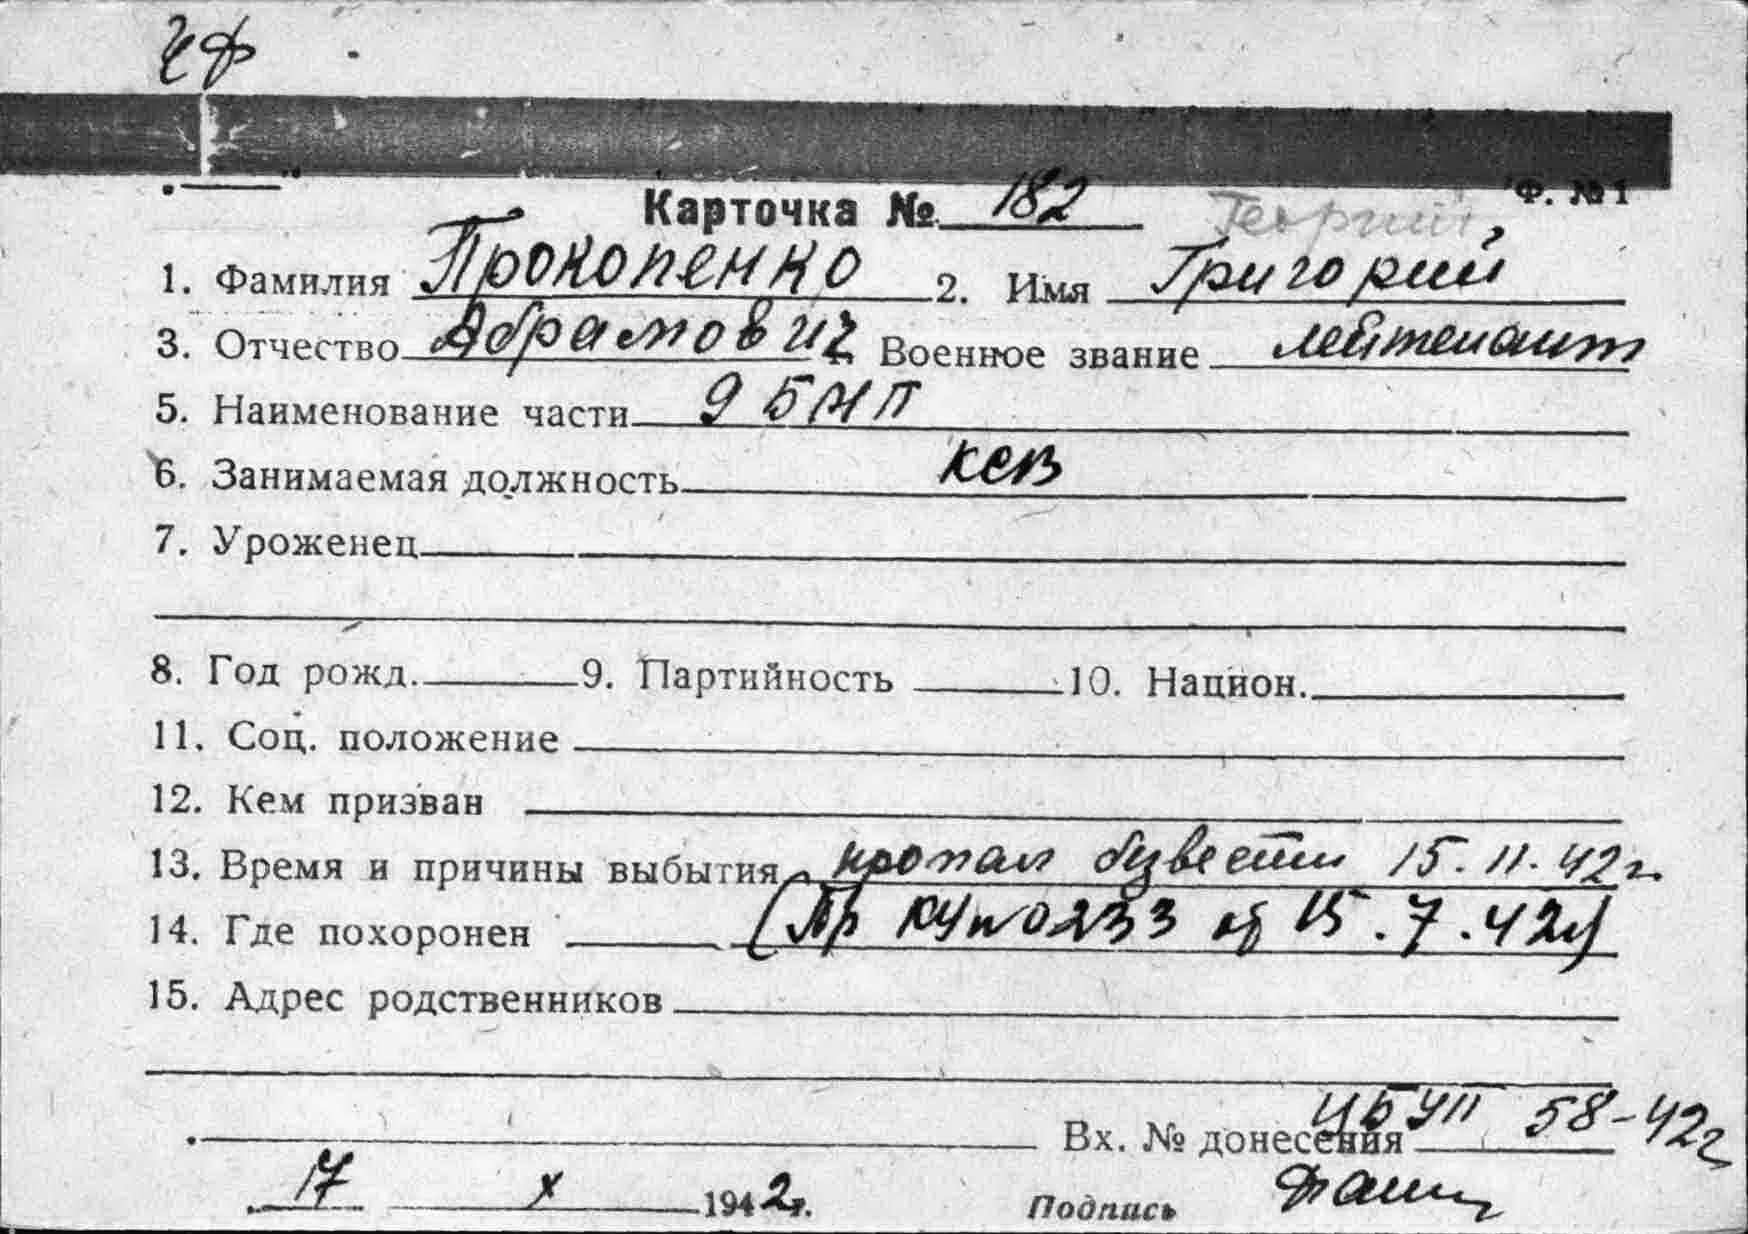 Ф. №1
Карточка № 182 Георгий
1. Фамилия Прокопенко 2. Имя Григорий
3. Отчество Абрамович Военное звание лейтенант
5. Наименование части 9 БАП
6. Занимаемая должность
7. Уроженец
8. Год рожд. 9. Партийность 10. Национ.
11. Соц. положение
12. Кем призван
13. Время и причины выбытия пропал безвести 15.11.42г.
14. Где похоронен (Пр 0233 от 15.7.42г)
15. Адрес родственников
Вх. № донесения ЦБУП 58-42г
17 X 1942г. Подпись